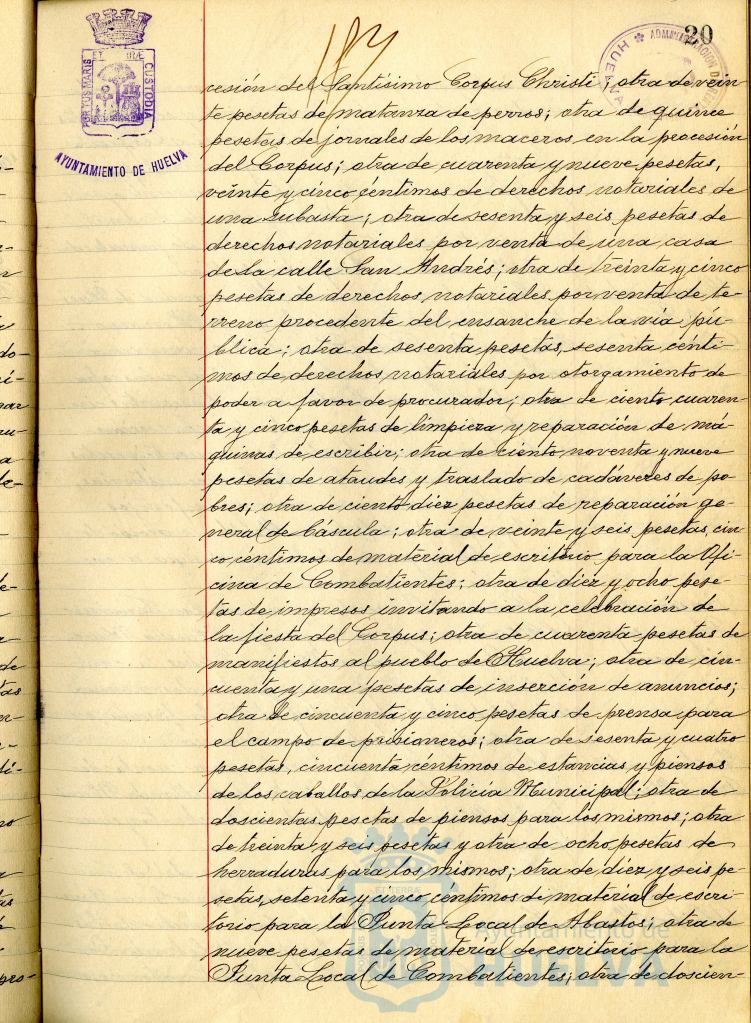 20
PORTUS MARIS ET TERRÆ CUSTODIA
AYUNTAMIENTO DE HUELVA
cesión del Santísimo Corpus Christi; otra de vein-
te pesetas de matanza de perros; otra de quince
pesetas de jornales de los maceros en la procesión
del Corpus; otra de cuarenta y nueve pesetas,
veinte y cinco céntimos de derechos notariales de
una subasta; otra de sesenta y seis pesetas de
derechos notariales por venta de una casa
de la calle San Andrés; otra de treinta y cinco
pesetas de derechos notariales por venta de te-
rreno procedente del ensanche de la vía pú-
blica; otra de sesenta pesetas, sesenta cénti-
mos de derechos notariales por otorgamiento de
poder a favor de procurador; otra de ciento cuaren-
ta y cinco pesetas de limpieza y reparación de má-
quinas de escribir; otra de ciento noventa y nueve
pesetas de ataudes y traslado de cadáveres de po-
bres; otra de ciento diez pesetas de reparación ge-
neral de báscula; otra de veinte y seis pesetas, cin-
co céntimos de material de escritorio para la Ofi-
cina de Combatientes; otra de diez y ocho pese-
tas de impresos invitando a la celebración de
la fiesta del Corpus; otra de cuarenta pesetas de
manifiestos al pueblo de Huelva; otra de cin-
cuenta y una pesetas de inserción de anuncios;
otra de cincuenta y cinco pesetas de prensa para
el campo de prisioneros; otra de sesenta y cuatro
pesetas, cincuenta céntimos de estancias y piensos
de los caballos de la Policía Municipal; otra de
doscientas pesetas de piensos para los mismos; otra
de treinta y seis pesetas y otra de ocho pesetas de
herraduras para los mismos; otra de diez y seis pe-
setas, setenta y cinco céntimos de material de escri-
torio para la Junta Local de Abastos; otra de
nueve pesetas de material de escritorio para la
Junta Local de Combatientes; otra de doscien-
Ayuntamiento de
HUELVA